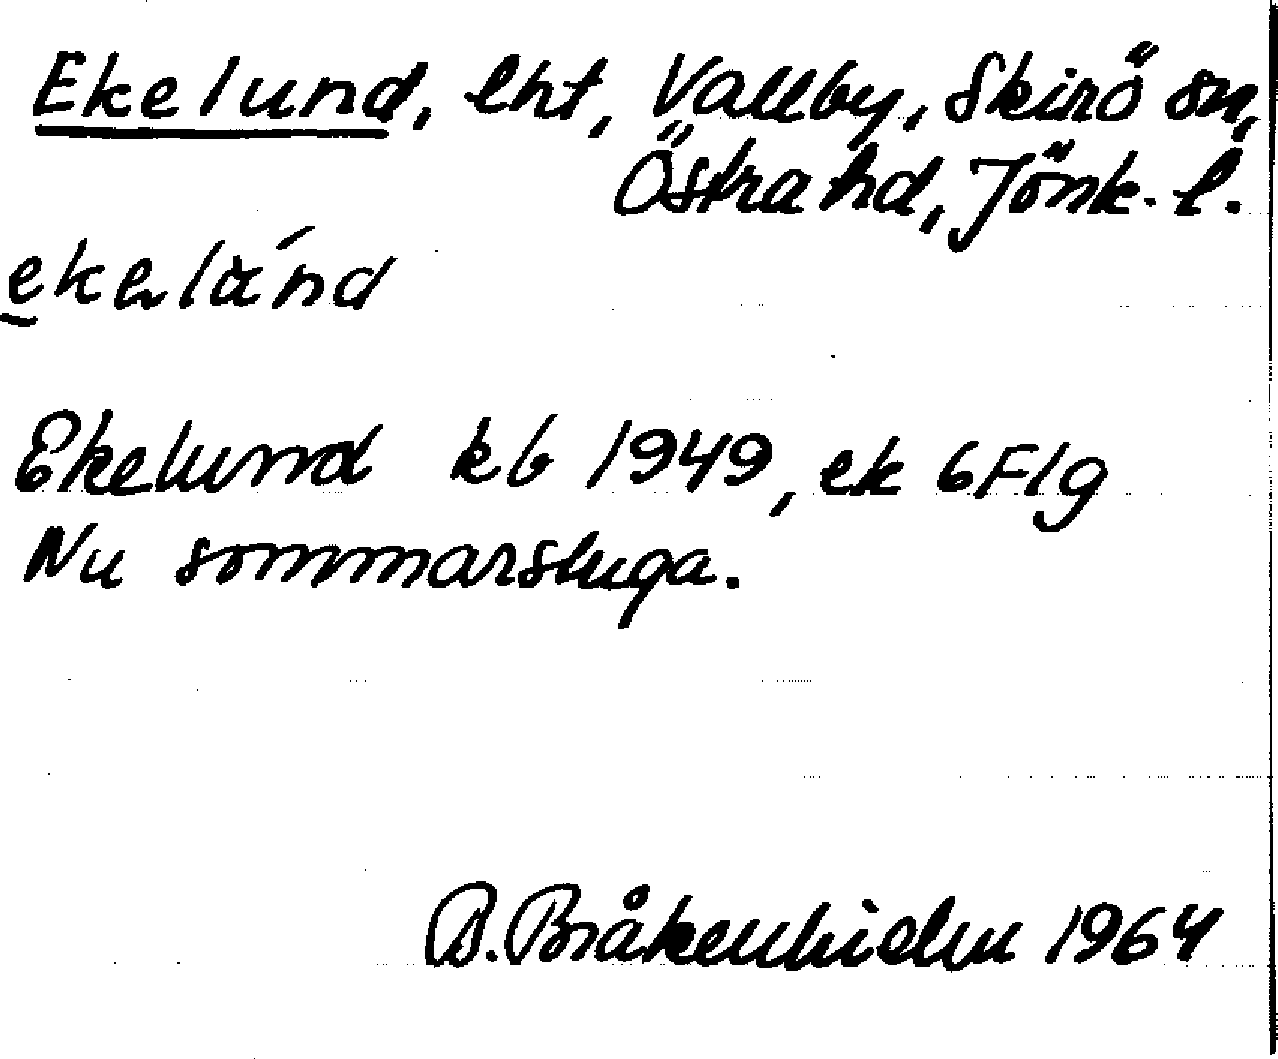 Ekelund, lht, Vallby, Skirö sn,
Östra hd, Jönk. l.
ekelánd
Ekelund kb 1949, ek 6F1g
Nu sommarstuga.
B. 1964